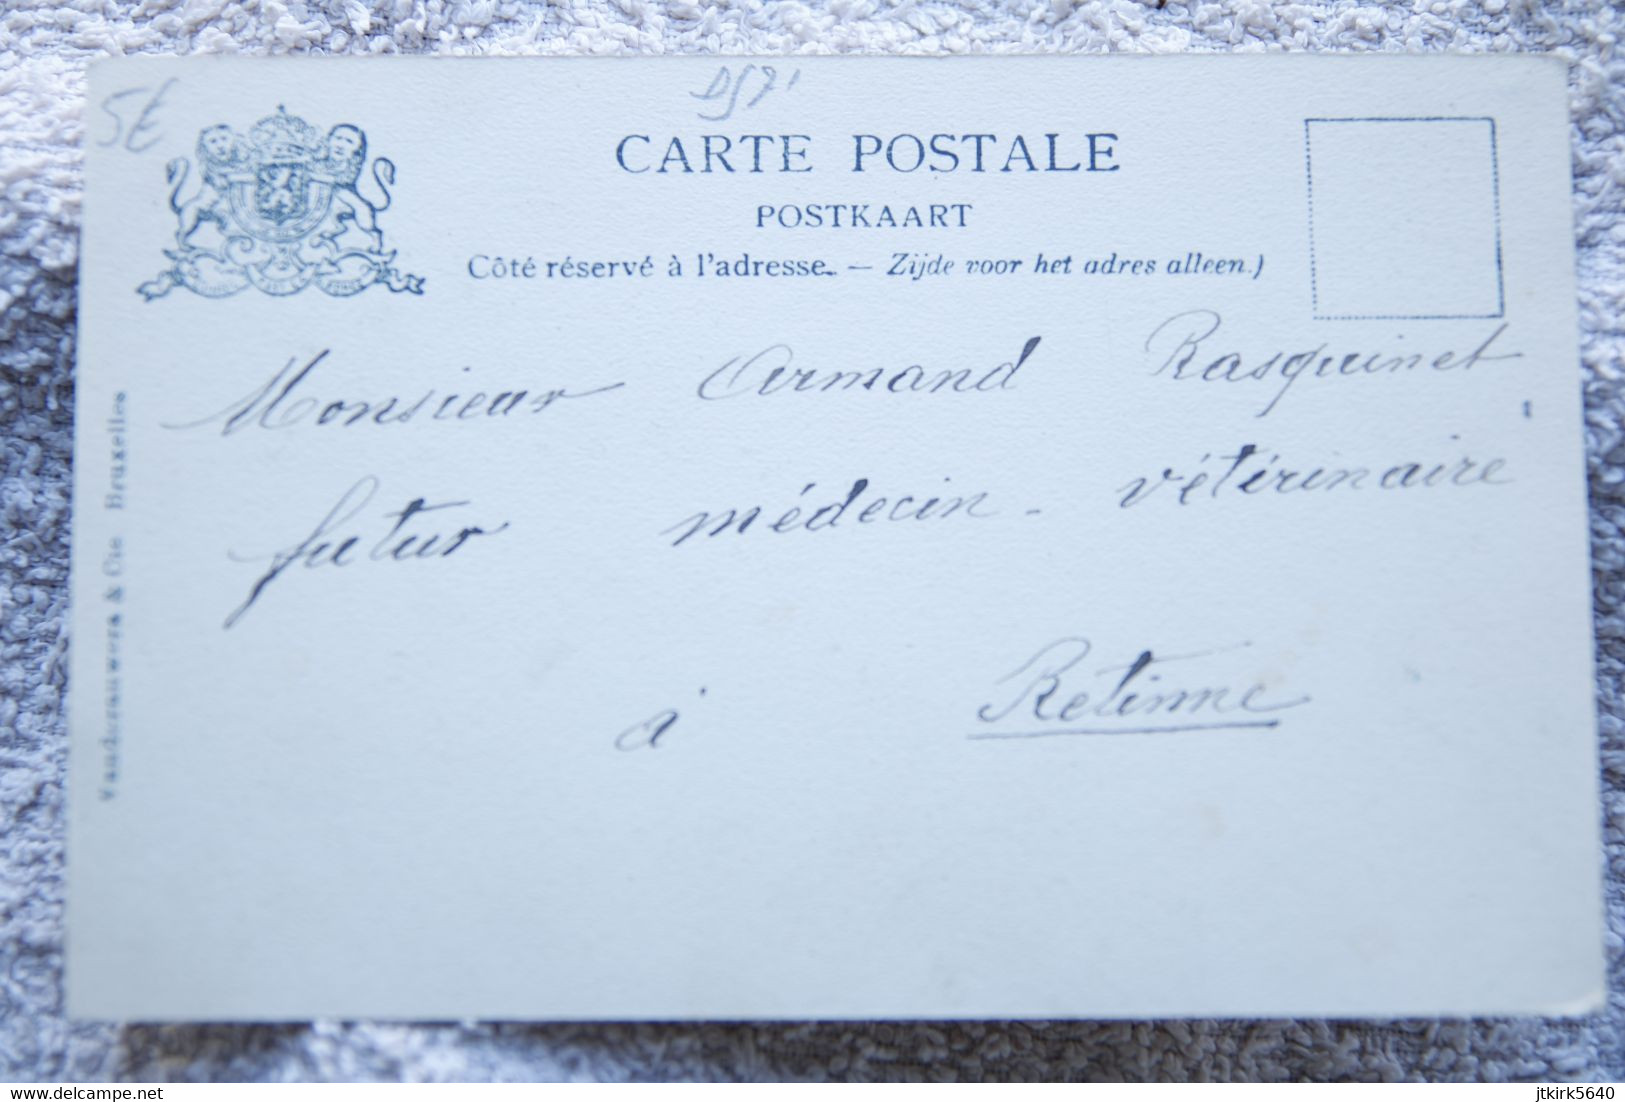 5€
CARTE POSTALE
POSTKAART
Côté réservé à l'adresse. — Zijde voor het adres alleen.)
Monsieur Armand Rasquinet
futur médecin - vétérinaire
à Retinne
& Cie Bruxelles
delcampe.net
jtkirk5640